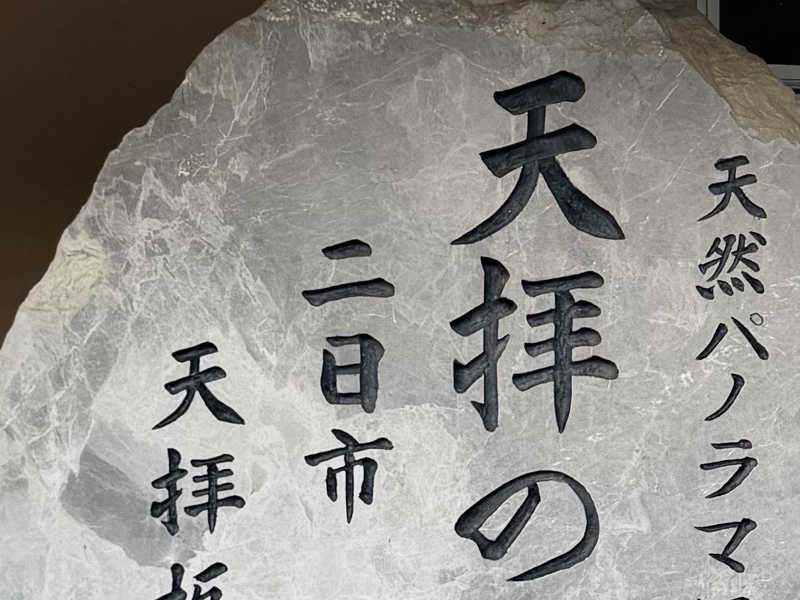 天然パノラマ
天拝の
二日市
天拝